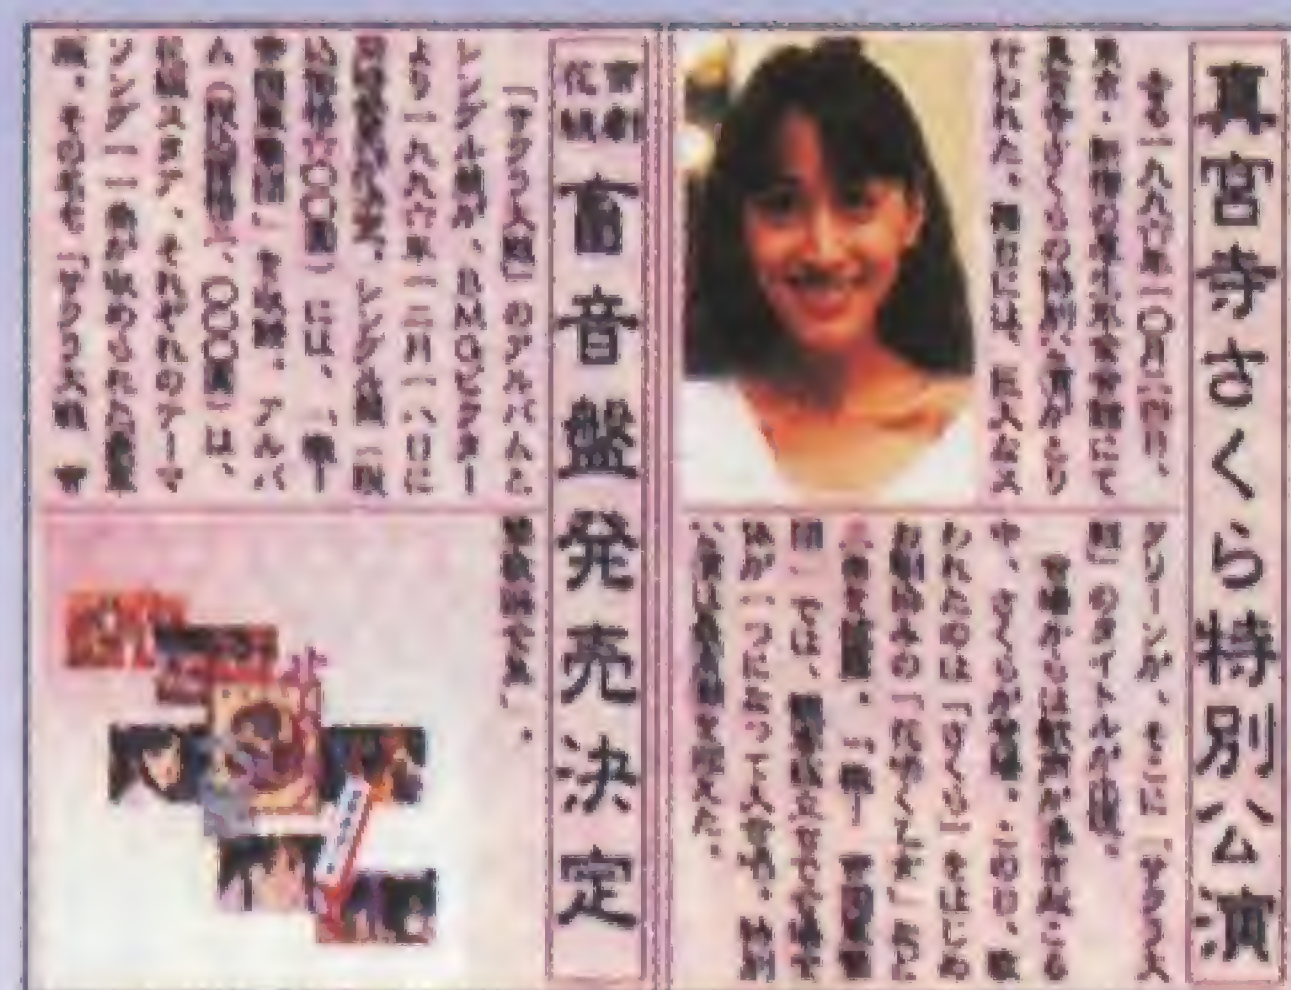 真宮寺さくら特別公演
去る一九九六年一〇月二四日、
東京・新宿の厚生年金会館にて
真宮寺さくらの特別公演がとり
行われた。舞台には、巨大なス
クリーンが、そこに「サクラ大
戦」のタイトルが出現。
会場からは歓声が巻き起こる
中、さくらが登場。この日、歌
われたのは「さくら」をはじめ
お馴染みの「花咲く乙女」など
三曲を披露。「檄!帝国華撃
団」では、観客総立ちで会場全
体が一つになって大合唱。特別
公演は
を迎えた。
帝劇花組 蓄音盤発売決定
「サクラ大戦」のアルバムと
シングル盤が、BMGビクター
より一九九六年一二月一八日に
同時発売決定。シングル盤(税
込価格
〇〇〇円)には、「檄!
帝国華撃団」を収録。アルバ
ム(税込価格三、〇〇〇円)は、
花組スタア、それぞれのテーマ
ソング一一曲が収められた豪華
版。その名も「サクラ大戦 帝
劇歌謡全集」。